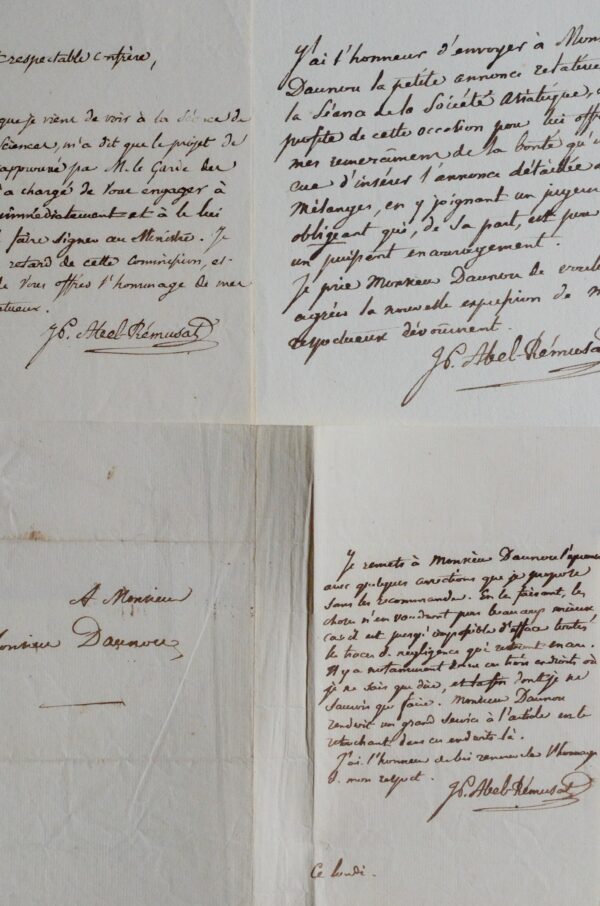 respectable confrère,
que je viens de voir à la Séance de
Sciences, m'a dit que le projet de
approuvé par M. le Garde des
'a chargé de vous engager à
immédiatement et à le lui
faire signer au Ministre. Je
retard de cette commission, et
de vous offrir l'hommage de mes
JP. Abel-Rémusat
J'ai l'honneur d'envoyer à Mon
Daunou la petite annonce relative
la Séance de la Société Asiatique,
profite de cette occasion pour lui offr
mes remercîmens de la bonté qu'il
eue d'insérer l'annonce détaillée
Mélanges, en y joignant un jugem
obligeant qui, de sa part, est pour
un puissant encouragement.
Je prie Monsieur Daunou de vouloi
agréer la nouvelle expression de m
respectueux dévouement.
JP. Abel-Rémusa
A Monsieur
onsieur Daunou
Je remets à Monsieur Daunou l'épreuve
avec quelques corrections que je propose
sans les recommander. En le faisant, les
chose n'en vaudront pas beaucoup mieux
car il est presqu'impossible d'effacer toutes
les traces de négligence qui restent encore.
Il y a notamment deux ou trois endroits où
je ne sais que dire, et la fin dont je ne
saurois que faire. Monsieur Daunou
rendroit un grand service à l'article en le
retouchant dans ces endroits là.
J'ai l'honneur de lui renouveler l'hommage
de mon respect.
JP. Abel-Rémusat
Ce lundi.